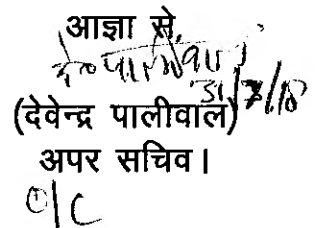 आज्ञा से,
दे० पालीवाल
31/7/18
(देवेन्द्र पालीवाल)
अपर सचिव।
O/C